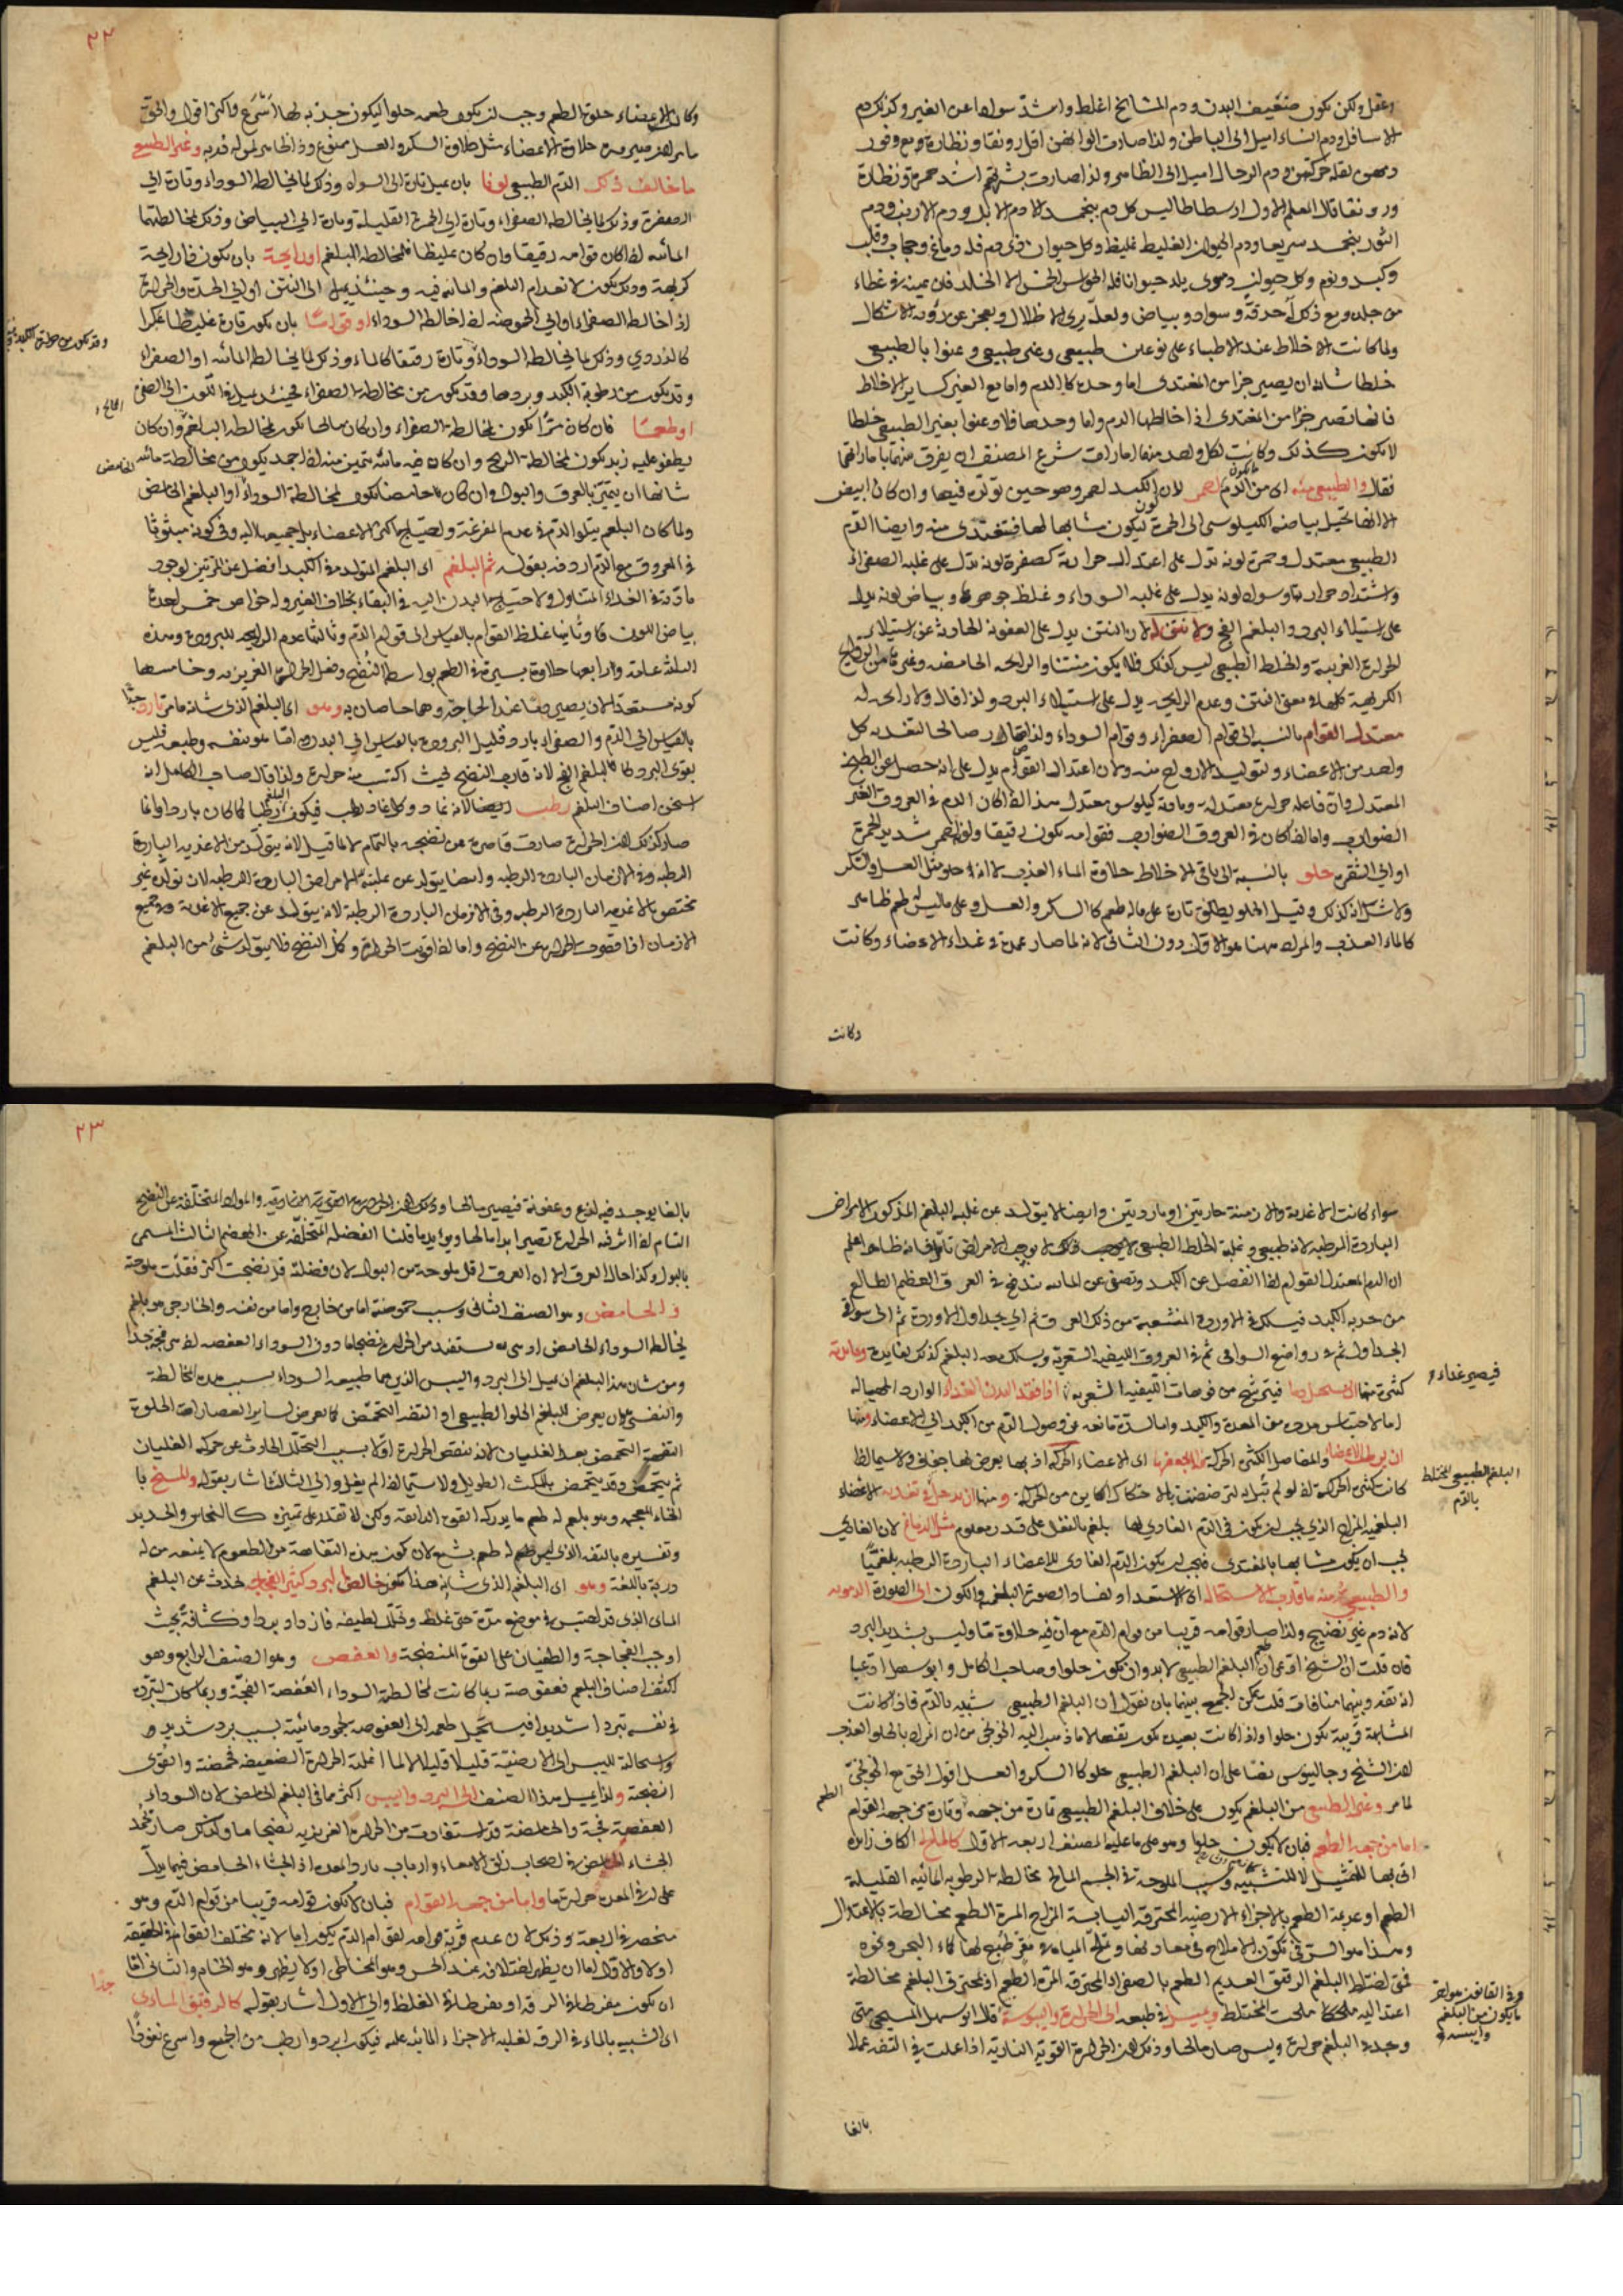 وعقل ولكن يكون ضعيف البدن ودم المشايخ اغلظ واشد سوادا عن الغير وكذلك دم
الاسافل ودم النساء اميل الى الباطن ولذا صارت الوانهن اقل رونقا ونظارة مع وفور
دمهن لقلة حركتهن ودم الرجال اميل الى الظاهر ولذا صارت بشرتهم اشد حمرة ونظارة
ورونقا قال المعلم الاول ارسطاطاليس كل دم ينجمد الا دم الابل ودم الارنب ودم
الثور ينجمد سريعا ودم الحيوان الغليظ غليظ وكل حيوان ذى دم فله دماغ وحجاب وقلب
وكبد ونوم وكل حيوان دموى يلد حيوانا فله الحواس الخمس الا الخلد فان عينيه فى غطاء
من جلده ومع ذلك له حدقة وسواد وبياض ولعله يرى الاظلال ويعجز عن رؤية الاشكال
ولما كانت الاخلاط عند الاطباء على نوعين طبيعى وغير طبيعى وعنوا بالطبيعى
خلطا شانه ان يصير جزا من المغتذى اما وحده كالدم واما مع الغير كساير الاخلاط
فانها تصير جزا من المغتذى اذا خالطها الدم واما وحدها فلا وعنوا بغير الطبيعى خلطا
لا يكون كذلك وكانت لكل واحد منها امارات شرع المصنف ان يفرق منهما باماراتها
فقال والطبيعى منه اى من الدم احمر لان الكبد احمر وهو حين تولده فيها وان كان ابيض
الا انها تحيل بياضه الكيلوسى الى الحمرة ليكون مشابها لها فتغتذى منه وايضا الدم
الطبيعى معتدل وحمرة لونه تدل على اعتدال حرارته كصفرة لونه تدل على غلبه الصفراء
واشتداد حرارته وسواد لونه يدل على غلبه السوداء وغلظ جوهره وبياض لونه يدل
على استيلاء البرد والبلغم الفج ولا نتن له لان النتن يدل على العفونة الحادثة عن استيلاء
الحرارة الغريبة والخلط الطبيعى ليس كذلك فلا يكون منتنا والرايحه الحامضه وغيرها من الروايح
الكريهة كلها فى معنى النتن وعدم الرايحه يدل على استيلاء البرد ولذا قال ولا رايحه له
معتدل القوام بالنسبه الى قوام الصفراء وقوام السوداء ولذا صالحا لتغذيه كل
واحد من الاعضاء ولتوليد الارواح منه ولان اعتدال القوام يدل على انه حصل عن الطبخ
المعتدل وان فاعله حرارة معتدله ومادته كيلوس معتدل هذا اذا كان الدم فى العروق الغير
الضوارب واما اذا كان فى العروق الضوارب فقوامه يكون رقيقا ولونه احمر شديد الحمرة
او الى الشقره حلو بالنسبة الى باقى الاخلاط حلاوة الماء العذب لا انه حلو مثل العسل والسكر
ولا شك انه كذلك وقيل الحلو يطلق تارة على ماله طعم كالسكر والعسل وعلى ما ليس له طعم ظاهر
كالماء العذب والمراد ههنا هو الاول دون الثانى لانه لما صار عمدة فى غذاء الاعضاء وكانت
وكانت
٢٢
وكان الاعضاء حلوة الطعم وجب ان يكون طعمه حلوا ليكون جذبه لها اسرع واكثر اقول والحق
ما خالف ذلك الدم الطبيعى لونا بان يميل تارة الى السواد وذلك لما يخالطه السوداء وتارة الى
الصفرة وذلك لما يخالطه الصفراء وتارة الى الحمرة القليلة وتارة الى البياض وذلك لمخالطتها
المائيه اذا كان قوامه رقيقا وان كان غليظا فلمخالطه البلغم او رايحة بان يكون له رايحة
كريهة وذلك يكون لانعدام البلغم والمائيه فيه وحينئذ يميل الى النتن او الى الحدة والحرارة
اذا خالط الصفراء او الى الحموضه اذا خالط السوداء او قواما بان يكون تارة غليظا عكرا
كالدردى وذلك لما يخالطه السوداء وتارة رقيقا كالماء وذلك لما يخالطه المائيه او الصفراء
او طعما فان كان مرا يكون لمخالطه الصفراء وان كان مالحا يكون لمخالطه البلغم وان كان
يطفو عليه زبد يكون لمخالطه الريح وان كان فيه مائيه تتميز منه اذا جمد يكون من مخالطة مائيه
شانها ان تتميز بالعرق والبول وان كان حامضا يكون لمخالطة السوداء او البلغم الحامض
ولما كان البلغم يتلو الدم فى عدم المفرغة ولاحتياج اكثر الاعضاء بل جميعها اليه وفى كونه مبثوثا
فى العروق مع الدم اردفه بقوله ثم البلغم اى البلغم المتولد فى الكبد افضل عن المرتين لوجود
مادته فى الغذاء المتناول ولاحتياج البدن اليه فى البقاء بخلاف الغير وله خواص خمس احدها
بياض اللون وثانيها غلظ القوام بالقياس الى قوام الدم وثالثها عدم الرايحه للبرودة وهذه
الثلثة عامة ورابعها حلاوة يسيرة فى الطعم بواسطه النضج وفعل الحرارة الغريزيه وخامسها
كونه مستعدا لان يصير دما عند الحاجة وهما خاصان به وهو اى البلغم الذى شانه ما مر بارد جدا
بالقياس الى الدم والصفراء بارد قليل البرودة بالقياس الى البدن اما هو بنفسه وطبعه فليس
بقوى البرد كالبلغم الفج لانه قارب النضج بحيث اكتسب منه حرارة ولذا قال صاحب الكامل انه
اسخن اصناف البلغم رطب ايضا لانه غاذ وكل غاذ رطب فيكون البلغم رطبا كما كان باردا وانما
صار كذلك لان الحرارة صارت قاصرة عن نضجه بالتمام لا لما قيل لانه يتولد من الاغذيه الباردة
الرطبه وفى الازمان الباردة الرطبه وايضا يتولد عن غلبته الامراض الباردة الرطبه لان تولده غير
مختص بالاغذيه الباردة الرطبه وفى الازمان الباردة الرطبة لانه يتولد عن جميع الاغذية وفى جميع
الازمان اذا قصرت الحرارة عن النضج واما اذا قويت الحرارة وكمل النضج فلا يتولد شئ من البلغم
سواء كانت الاغذية والازمنة حارتين او باردتين وايضا لا يتولد عن غلبه البلغم المذكور الامراض
الباردة الرطبه لانه طبيعى وغلبة الخلط الطبيعى لا يوجب ذلك لا يوجب الامراض تامل فانه ظاهر اعلم
ان الدم المعتدل القوام اذا انفصل عن الكبد وتصفى عن المائيه تندفع فى العرق العظيم الطالع
من حدبه الكبد فيسلك فى الاوردة المنشعبة من ذلك العرق ثم الى جداول الاوردة ثم الى سواقى
الجداول ثم فى رواضع السواقى ثم فى العروق الليفيه الشعريه ويسلك معه البلغم كذلك لفايدة وعائدته
فيصير غذاء
كثيرة منها ان يستحيل دما فيترشح من فوهات الليفيه الشعريه اذا فقد البدن الغذاء الوارد الحصيالة
اما لاحتباس مدده من المعدة والكبد واما لسدة مانعه عن وصول الدم من الكبد الى الاعضاء ومنها
ان يرطب الاعضاء والمفاصل الكثير الحركة فلا يجففها اى الاعضاء الحركه اذ بها يعرض لها جفاف ولا سيما اذا
كانت كثير الحركة اذ لو لم تبل لتضغضت بالاحتكاك الكاين من الحركة ومنها ان يدخل فى تغذيه الاعضاء
البلغم الطبيعى المختلط بالدم
البلغميه المزاج الذى يجب ان يكون فى الدم الغاذى لها بلغم بالفعل على قدر معلوم مثل الدماغ لان الغاذى
يجب ان يكون مشابها بالمغتذى فيجب ان يكون الدم الغاذى للاعضاء الباردة الرطبه بلغميا
والطبيعى منه ما قارب الاستحاله اى الاستعداد لفساد الصورة البلغميه والكون الى الصورة الدمويه
لانه دم غير نضيج ولذا صار قوامه قريبا من قوام الدم مع ان فيه حلاوة ما وليس بشديد البرد
فان قلت ان الشيخ ادعى ان طعم البلغم الطبيعى لا بد وان يكون حلوا وصاحب الكامل وابو سهل ادعيا
انه تفه وبينهما منافات قلت يمكن الجمع بينهما بان نقول ان البلغم الطبيعى شبيه بالدم فاذا كانت
المشابهة قريبة يكون حلوا واذا كانت بعيدة يكون تفها لا ما ذهب اليه الخونجى من ان المراد بالحلو العذب
لان الشيخ وجالينوس نصا على ان البلغم الطبيعى حلو كالسكر والعسل اقول الحق مع الخونجى
لما مر وغير الطبيعى من البلغم يكون على خلاف البلغم الطبيعى تارة من جهة الطعم وتارة من جهة القوام
اما من جهه الطعم فبان لا يكون حلوا وهو على ما عليه المصنف اربعه الاول كالمالح الكاف زايدة
اتى بها للتمثيل لا للتشبيه وسبب الملوحة فى الجسم المالح مخالطه الرطوبه المائيه القليلة
الطعم او عديمة الطعم بالاجزاء الارضيه المحترقه اليابسة المزاج المرة الطعم مخالطة بالاعتدال
وهذا هو السر فى تكون الاملاح فى معادنها وتملح المياه من غير طبخ لها كماء البحر وغيره
فمتى اختلط البلغم الرقيق العديم الطعم بالصفراء المحترقه المرة الطعم او محترق البلغم مخالطة
اعتداليه ملحته ملحت المختلط ويميل فى طبعه الى الحرارة واليبوسة قال ابو سهل المسيحى متى
وجد فى البلغم حرارة ويبس صار مالحا وذلك لان الحرارة القوية النارية اذا عملت فى التفه عملا
بالغا
٢٣
بالغا يوجد فيه لذع وعفونة فيصير مالحا
التام اذا اثر فيه الحرارة تصير ابدا مالحا ويؤيد ما قلنا الفضله المتخلفه عن الهضم الثالث المسمى
بالبول وكذا حال العرق الا ان العرق اقل ملوحة من البول لان فضلته قد نضجت اكثر فقلت ملوحته
والحامض وهو الصنف الثانى وسبب حموضته اما من خارج واما من نفسه والخارجى هو بلغم
يخالطه السوداء الحامض
ومن شان هذا البلغم ان يميل الى البرد واليبس الذين هما طبيعه السوداء بسبب هذه المخالطة
والنفسى بان يعرض للبلغم الحلو الطبيعى او التفه التحمض كما يعرض لساير العصارات الحلوة
التفهة التحمض بعد الغليان لانه ينقص الحرارة اولا بسبب التحلل الحادث عن حركه الغليان
ثم يتحمض وقد يتحمض بالمكث الطويل ولا سيما اذا لم يغل والى الثالث اشار بقوله والمسخ با
الخاء المعجمه وهو بلغم له طعم ما يدركه القوه الذائقه ولكن لا تقدر على تميزه كالنحاس والحديد
وتفسيره بالتفه الذى ليس له طعم بشع لان كون هذه التفاهة من الطعوم لا يمنعه من له
دربة باللغة وهو اى البلغم الذى شانه هذا يكون خالص البرد كثير الفجاجه لحدوثه عن البلغم
المائى الذى قد احتبس فى موضع مدة حتى غلظ وتحلل لطيفه فازداد بردا وكثافة بحيث
اوجب الفجاجة والطغيان على القوة المنضجة والعفص وهو الصنف الرابع وهو
اكثف اصناف البلغم فعفوصته ربما كانت لمخالطة السوداء العفصة الفجة وربما كان لتبرده
فى نفسه تبردا شديدا فيستحيل طعمه الى العفوصه لجمود مائيته بسبب برد شديد و
واستحالة لليبس الى الارضية قليلا قليلا
انضجته ولذا يميل هذا الصنف الى البرد واليبس اكثر مما فى البلغم الحامض لان السوداء
العفصة فجة والحامضة قد استفادت من الحرارة الغريزيه نضجا ما وكذلك صار تجد
الجشاء الحامض فى اصحاب زلق الامعاء وارباب بارد المعده اذ الجشاء الحامض فيهما يدل
على ان فى المعدة حرارة ما واما من جهه القوام فبان لا يكون قوامه قريبا من قوام الدم وهو
منحصر فى اربعة وذلك لان عدم قربه قوامه لقوام الدم يكون اما لانه مختلف القوام فى الحقيقه
اولا والاول اما ان يظهر اختلافه عند الحس وهو المخاطى او لا يظهر وهو الخام والثانى اما
ان يكون مفرطا فى الرقه او مفرطا فى الغلظ والى الاول اشار بقوله كالرقيق المائى جدا
اى الشبيه بالماء فى الرقه لغلبه الاجزاء المائيه عليه فيكون ابرد وارطب من الجميع واسرع نفوذا